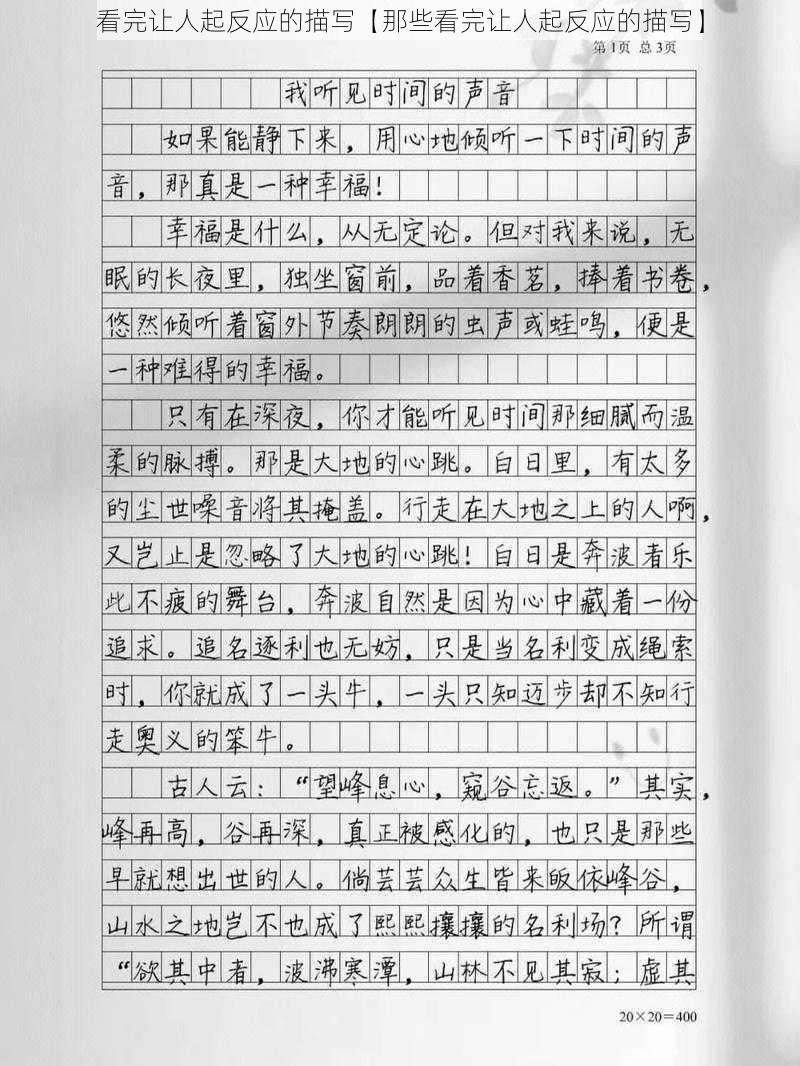 看完让人起反应的描写【那些看完让人起反应的描写】
第1页 总3页
我听见时间的声音
如果能静下来，用心地倾听一下时间的声
音，那真是一种幸福！
幸福是什么，从无定论。但对我来说，无
眠的长夜里，独坐窗前，品着香茗，捧着书卷，
悠然倾听着窗外节奏朗朗的虫声或蛙鸣，便是
一种难得的幸福。
只有在深夜，你才能听见时间那细腻而温
柔的脉搏。那是大地的心跳。白日里，有太多
的尘世噪音将其掩盖。行走在大地之上的人啊，
又岂止是忽略了大地的心跳！白日是奔波者乐
此不疲的舞台，奔波自然是因为心中藏着一份
追求。追名逐利也无妨，只是当名利变成绳索
时，你就成了一头牛，一头只知迈步却不知行
走奥义的笨牛。
古人云：“望峰息心，窥谷忘返。”其实，
峰再高，谷再深，真正被感化的，也只是那些
早就想出世的人。倘芸芸众生皆来皈依峰谷，
山水之地岂不也成了熙熙攘攘的名利场？所谓
“欲其中者，波沸寒潭，山林不见其寂；虚其
20×20=400